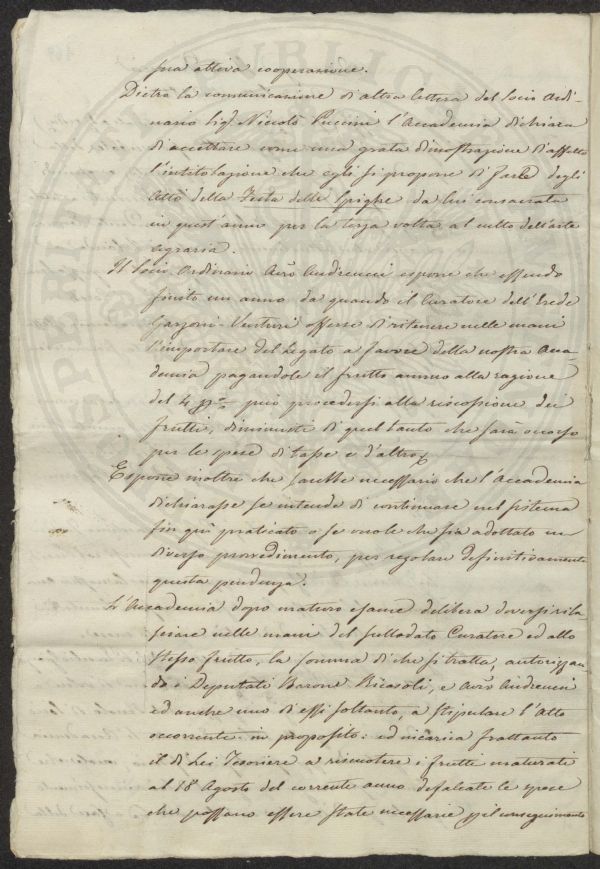 sua attiva cooperazione.
Dietro la comunicazione di altra lettera del Socio Ordi-
nario Sig.r Niccolò Puccini l'Accademia dichiara
di accettare come una grata dimostrazione d'affetto
l'intitolazione che egli si propone di farle degli
Atti della Festa delle Spighe da lui consacrata
in quest'anno per la terza volta al culto dell'arte
agraria.
Il Socio Ordinario Avv.o Andreucci espone che essendo
finito un anno da quando il Curatore dell'Erede
Garzoni-Venturi offerse di ritenere nelle mani
l'importare del Legato a favore della nostra Acca-
demia pagandole il frutto annuo alla ragione
del 4 può procedersi alla riscossione dei
frutti, diminuiti di quel tanto che sarà occorso
per le spese di tasse e d'altro.
Espone inoltre che sarebbe necessario che l'Accademia
dichiarasse se intende di continuare nel sistema
fin quì praticato o se vuole che sia adottato un
diverso provvedimento, per regolare definitivamente
questa pendenza.
L'Accademia dopo maturo esame delibera doversi rila-
sciare nelle mani del sullodato Curatore ed allo
stesso frutto, la somma di che si tratta, autorizzan-
do i Deputati Barone Ricasoli, e Avv.o Andreucci
ed anche uno di essi soltanto, a stipulare l'Atto
occorrente in proposito: ed incarica frattanto
il di Lei Tesoriere a riscuotere i frutti maturati
al 18 Agosto del corrente anno defalcate le spese
che possano essere state necessarie pel conseguimento